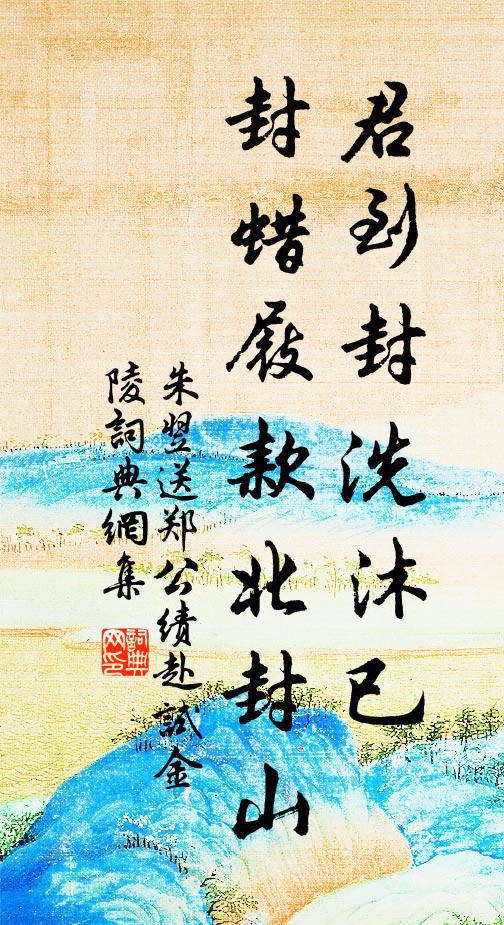 君到封洗沐已
封蜡屐款北封山
朱翌送郑公绩赴試金
陵詞典網集
詞典网印